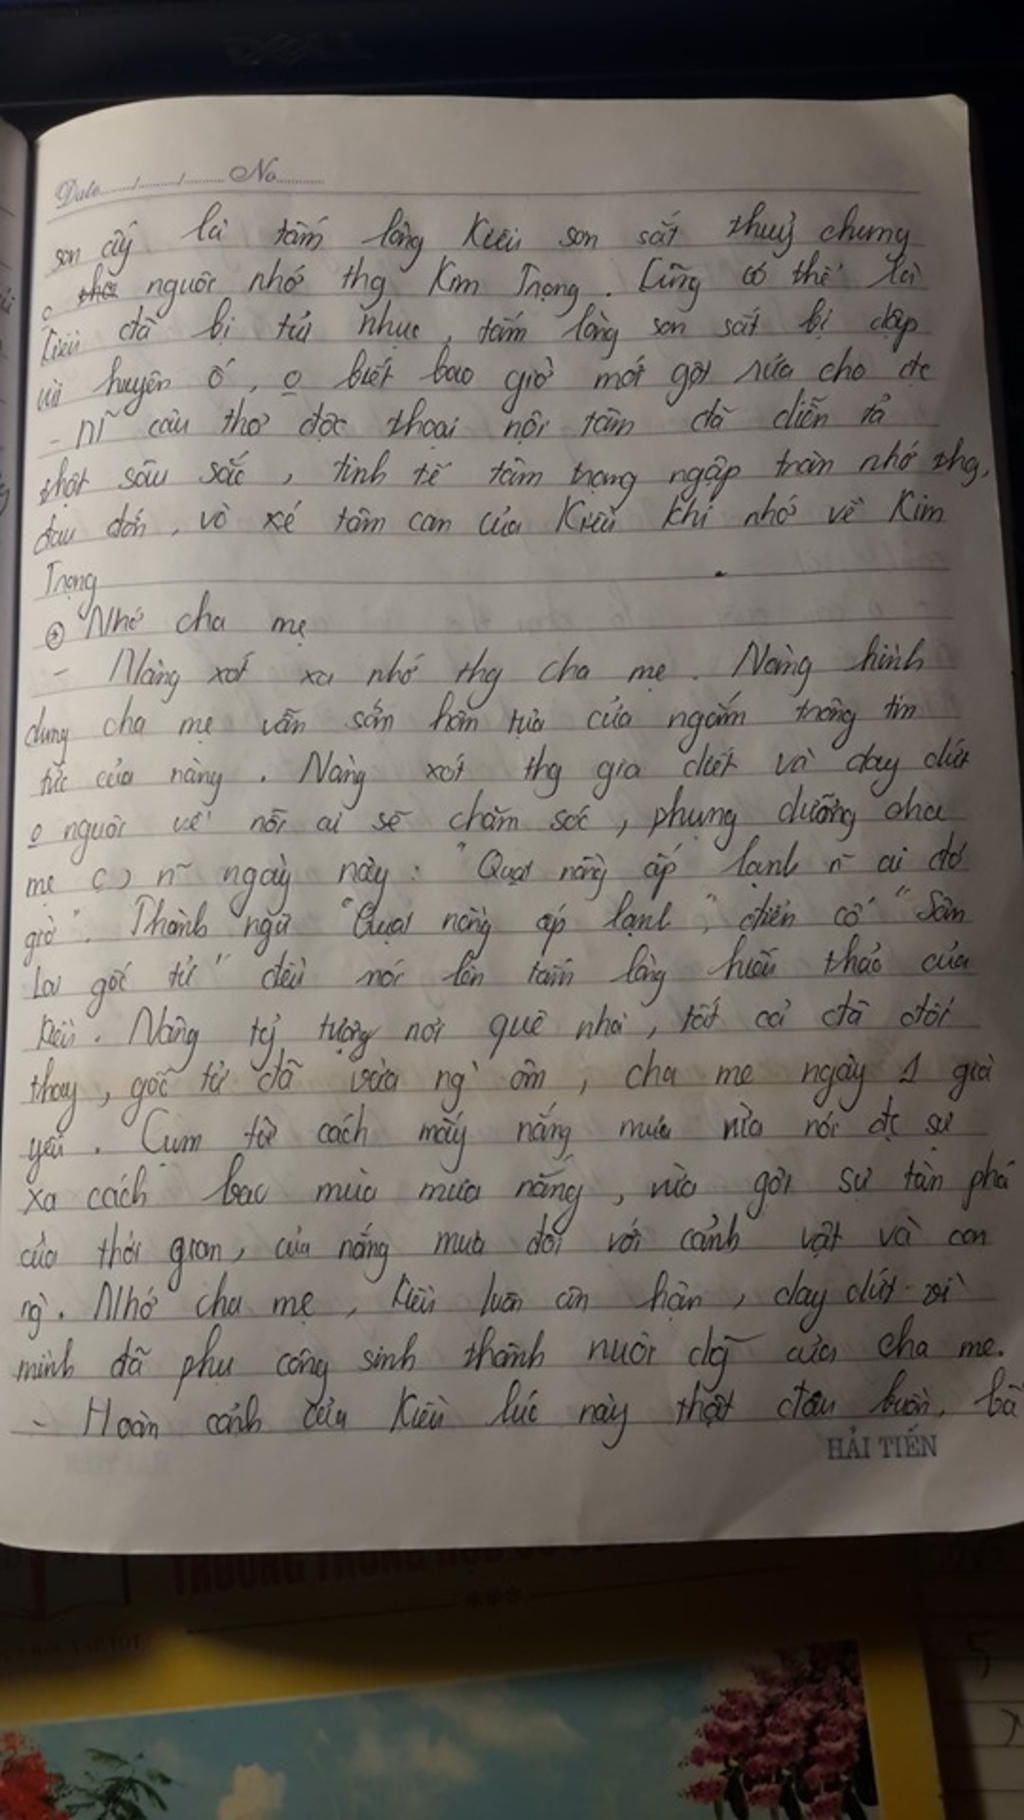 Date....../......../........ No..........
son ấy là tấm lòng Kiều son sắt thuỷ chung
o nguôi nhớ thg Kim Trọng. Cũng có thể là
Kiều đã bị tủi nhục, tấm lòng son sắt bị dập
vùi huyên ố, o biết bao giờ mới gột rửa cho đc
- Nĩ câu thơ độc thoại nội tâm đã diễn tả
thật sâu sắc, tinh tế tâm trạng ngập tràn nhớ thg,
đau đớn, vò xé tâm can của Kiều khi nhớ về Kim
Trọng
Nhớ cha mẹ
- Nàng xót xa nhớ thg cha mẹ. Nàng hình
dung cha mẹ vẫn sớm hôm tựa cửa ngóng trông tin
tức của nàng. Nàng xót thg gia diết và day dứt
o nguôi về nỗi ai sẽ chăm sóc, phụng dưỡng cha
mẹ n~ ngày này: "Quạt nồng ấp lạnh n~ ai đó
giờ". Thành ngữ "Quạt nồng ấp lạnh", điển cố "Sân
Lai gốc tử" đều nói lên tấm lòng hiếu thảo của
Kiều. Nàng tg tượng nơi quê nhà, tất cả đã đổi
thay, gốc tử đã vừa ng` ôm, cha mẹ ngày 1 già
yếu. Cụm từ cách mấy nắng mưa vừa nói đc sự
xa cách bao mùa mưa nắng, vừa gợi sự tàn phá
của thời gian, của nắng mưa đối với cảnh vật và con
ng`. Nhớ cha mẹ, Kiều luôn ân hận, day dứt vì
mình đã phụ công sinh thành nuôi dg~ của cha mẹ.
- Hoàn cảnh của Kiều lúc này thật đau buồn, bã
HẢI TIẾN